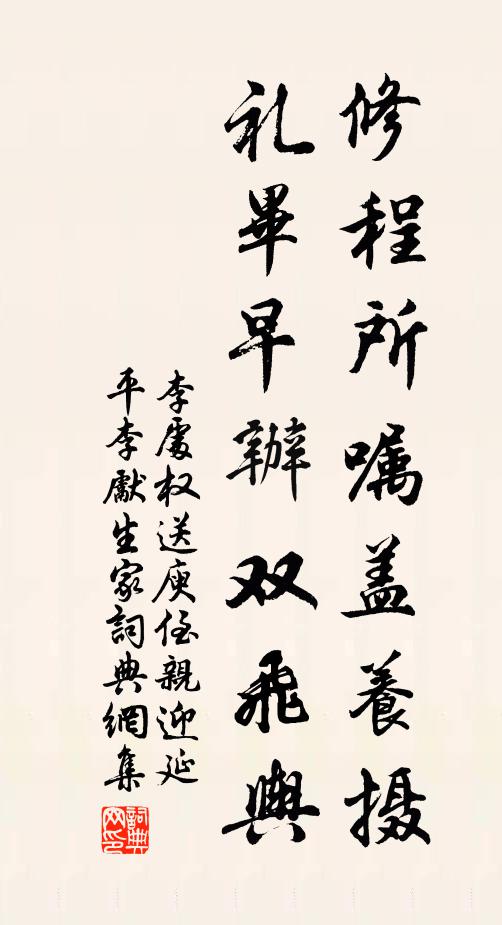 修程所嘱盖養摄
礼畢早辦双飛輿
李處权送庾侄親迎延
平李獻生家詞典網集
詞典